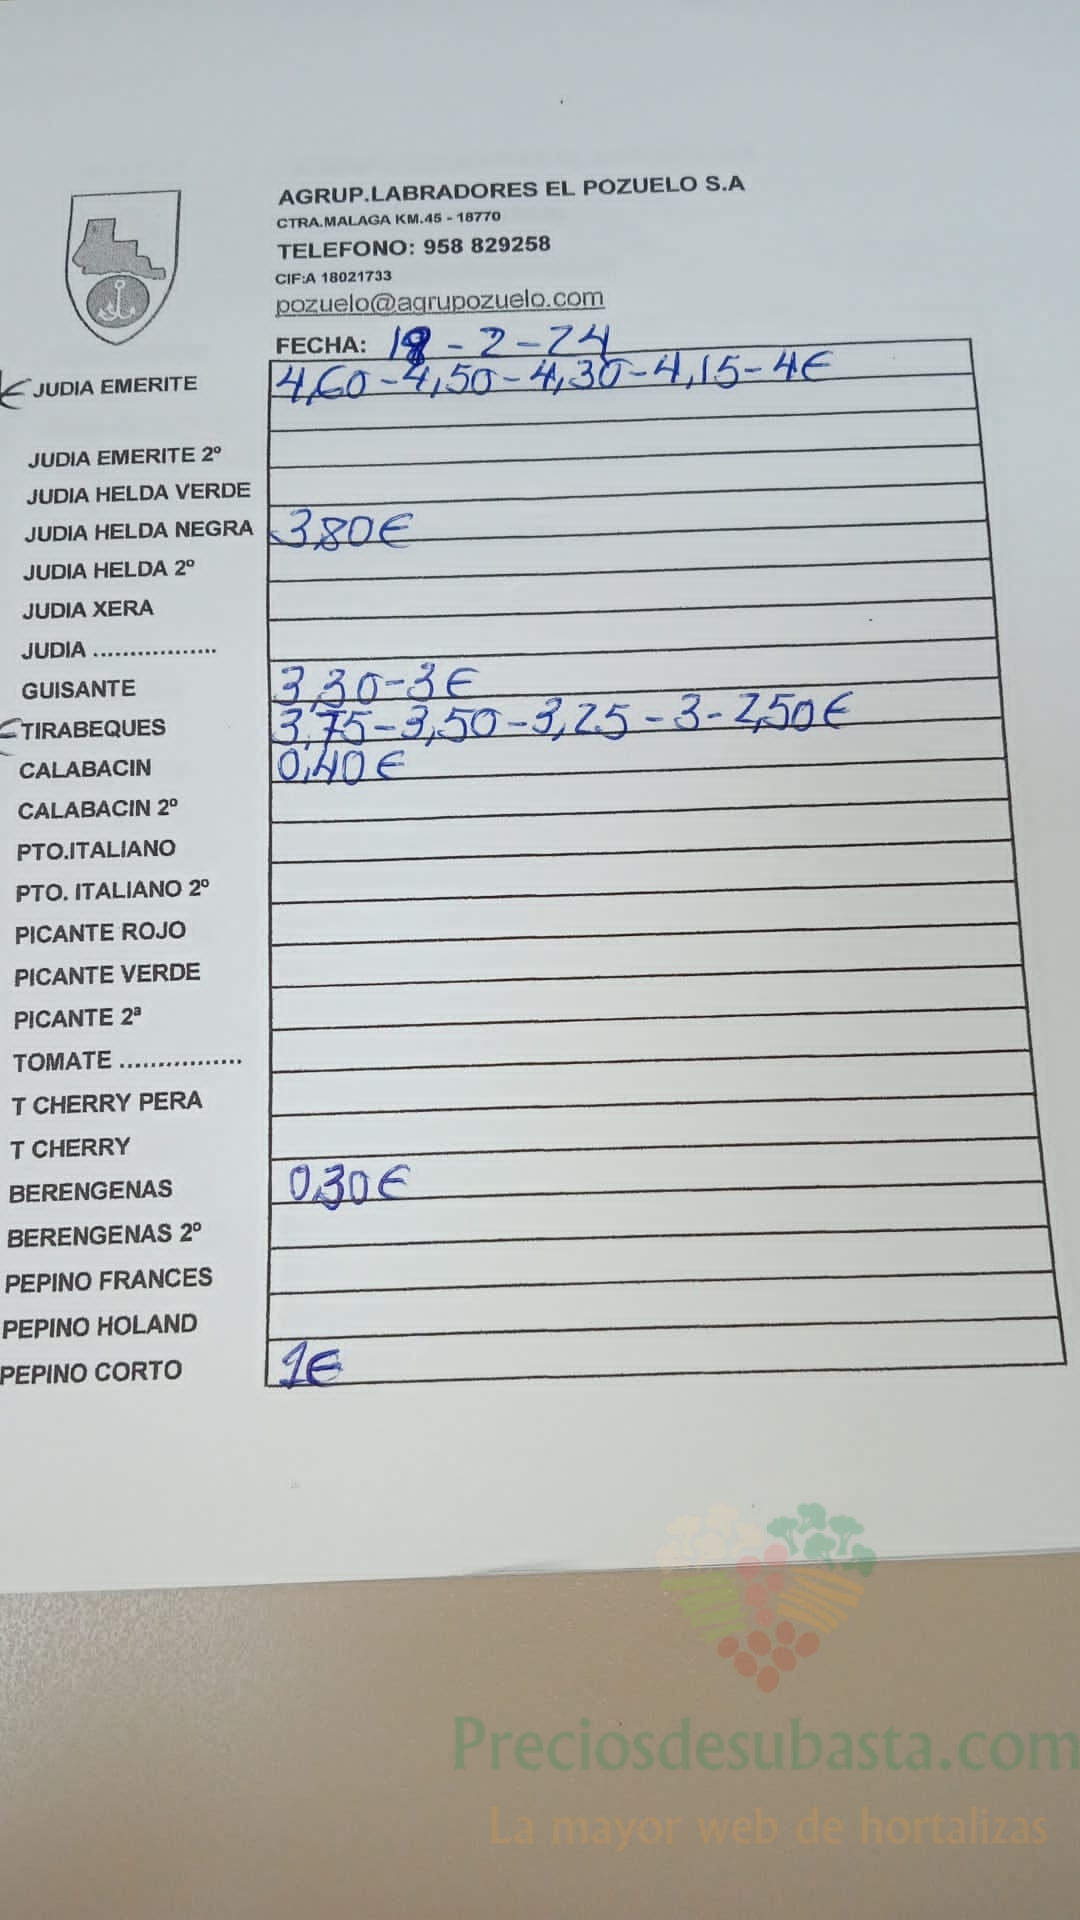 AGRUP.LABRADORES EL POZUELO S.A
CTRA.MALAGA KM.45 - 18770
TELEFONO: 958 829258
CIF:A 18021733
pozuelo@agrupozuelo.com
FECHA: -2-24
JUDIA EMERITE 4,60-4,50-4,30-4,15-4€
JUDIA EMERITE 2º
JUDIA HELDA VERDE
JUDIA HELDA NEGRA 3,80€
JUDIA HELDA 2º
JUDIA XERA
JUDIA .................
GUISANTE 3,30-3€
TIRABEQUES 3,75-3,50-3,25-3-2,50€
CALABACIN 0,40€
CALABACIN 2º
PTO.ITALIANO
PTO. ITALIANO 2º
PICANTE ROJO
PICANTE VERDE
PICANTE 2ª
TOMATE ................
T CHERRY PERA
T CHERRY
BERENGENAS 0,30€
BERENGENAS 2º
PEPINO FRANCES
PEPINO HOLAND
PEPINO CORTO 1€
Preciosdesubasta.com
La mayor web de hortalizas